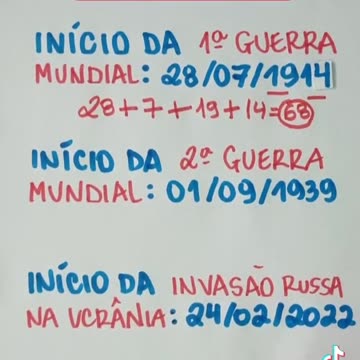 INÍCIO DA 1ª GUERRA
MUNDIAL: 28/07/1914
28+7+19+14=68
INÍCIO DA 2ª GUERRA
MUNDIAL: 01/09/1939
INÍCIO DA INVASÃO RUSSA
NA UCRÂNIA: 24/02/2022